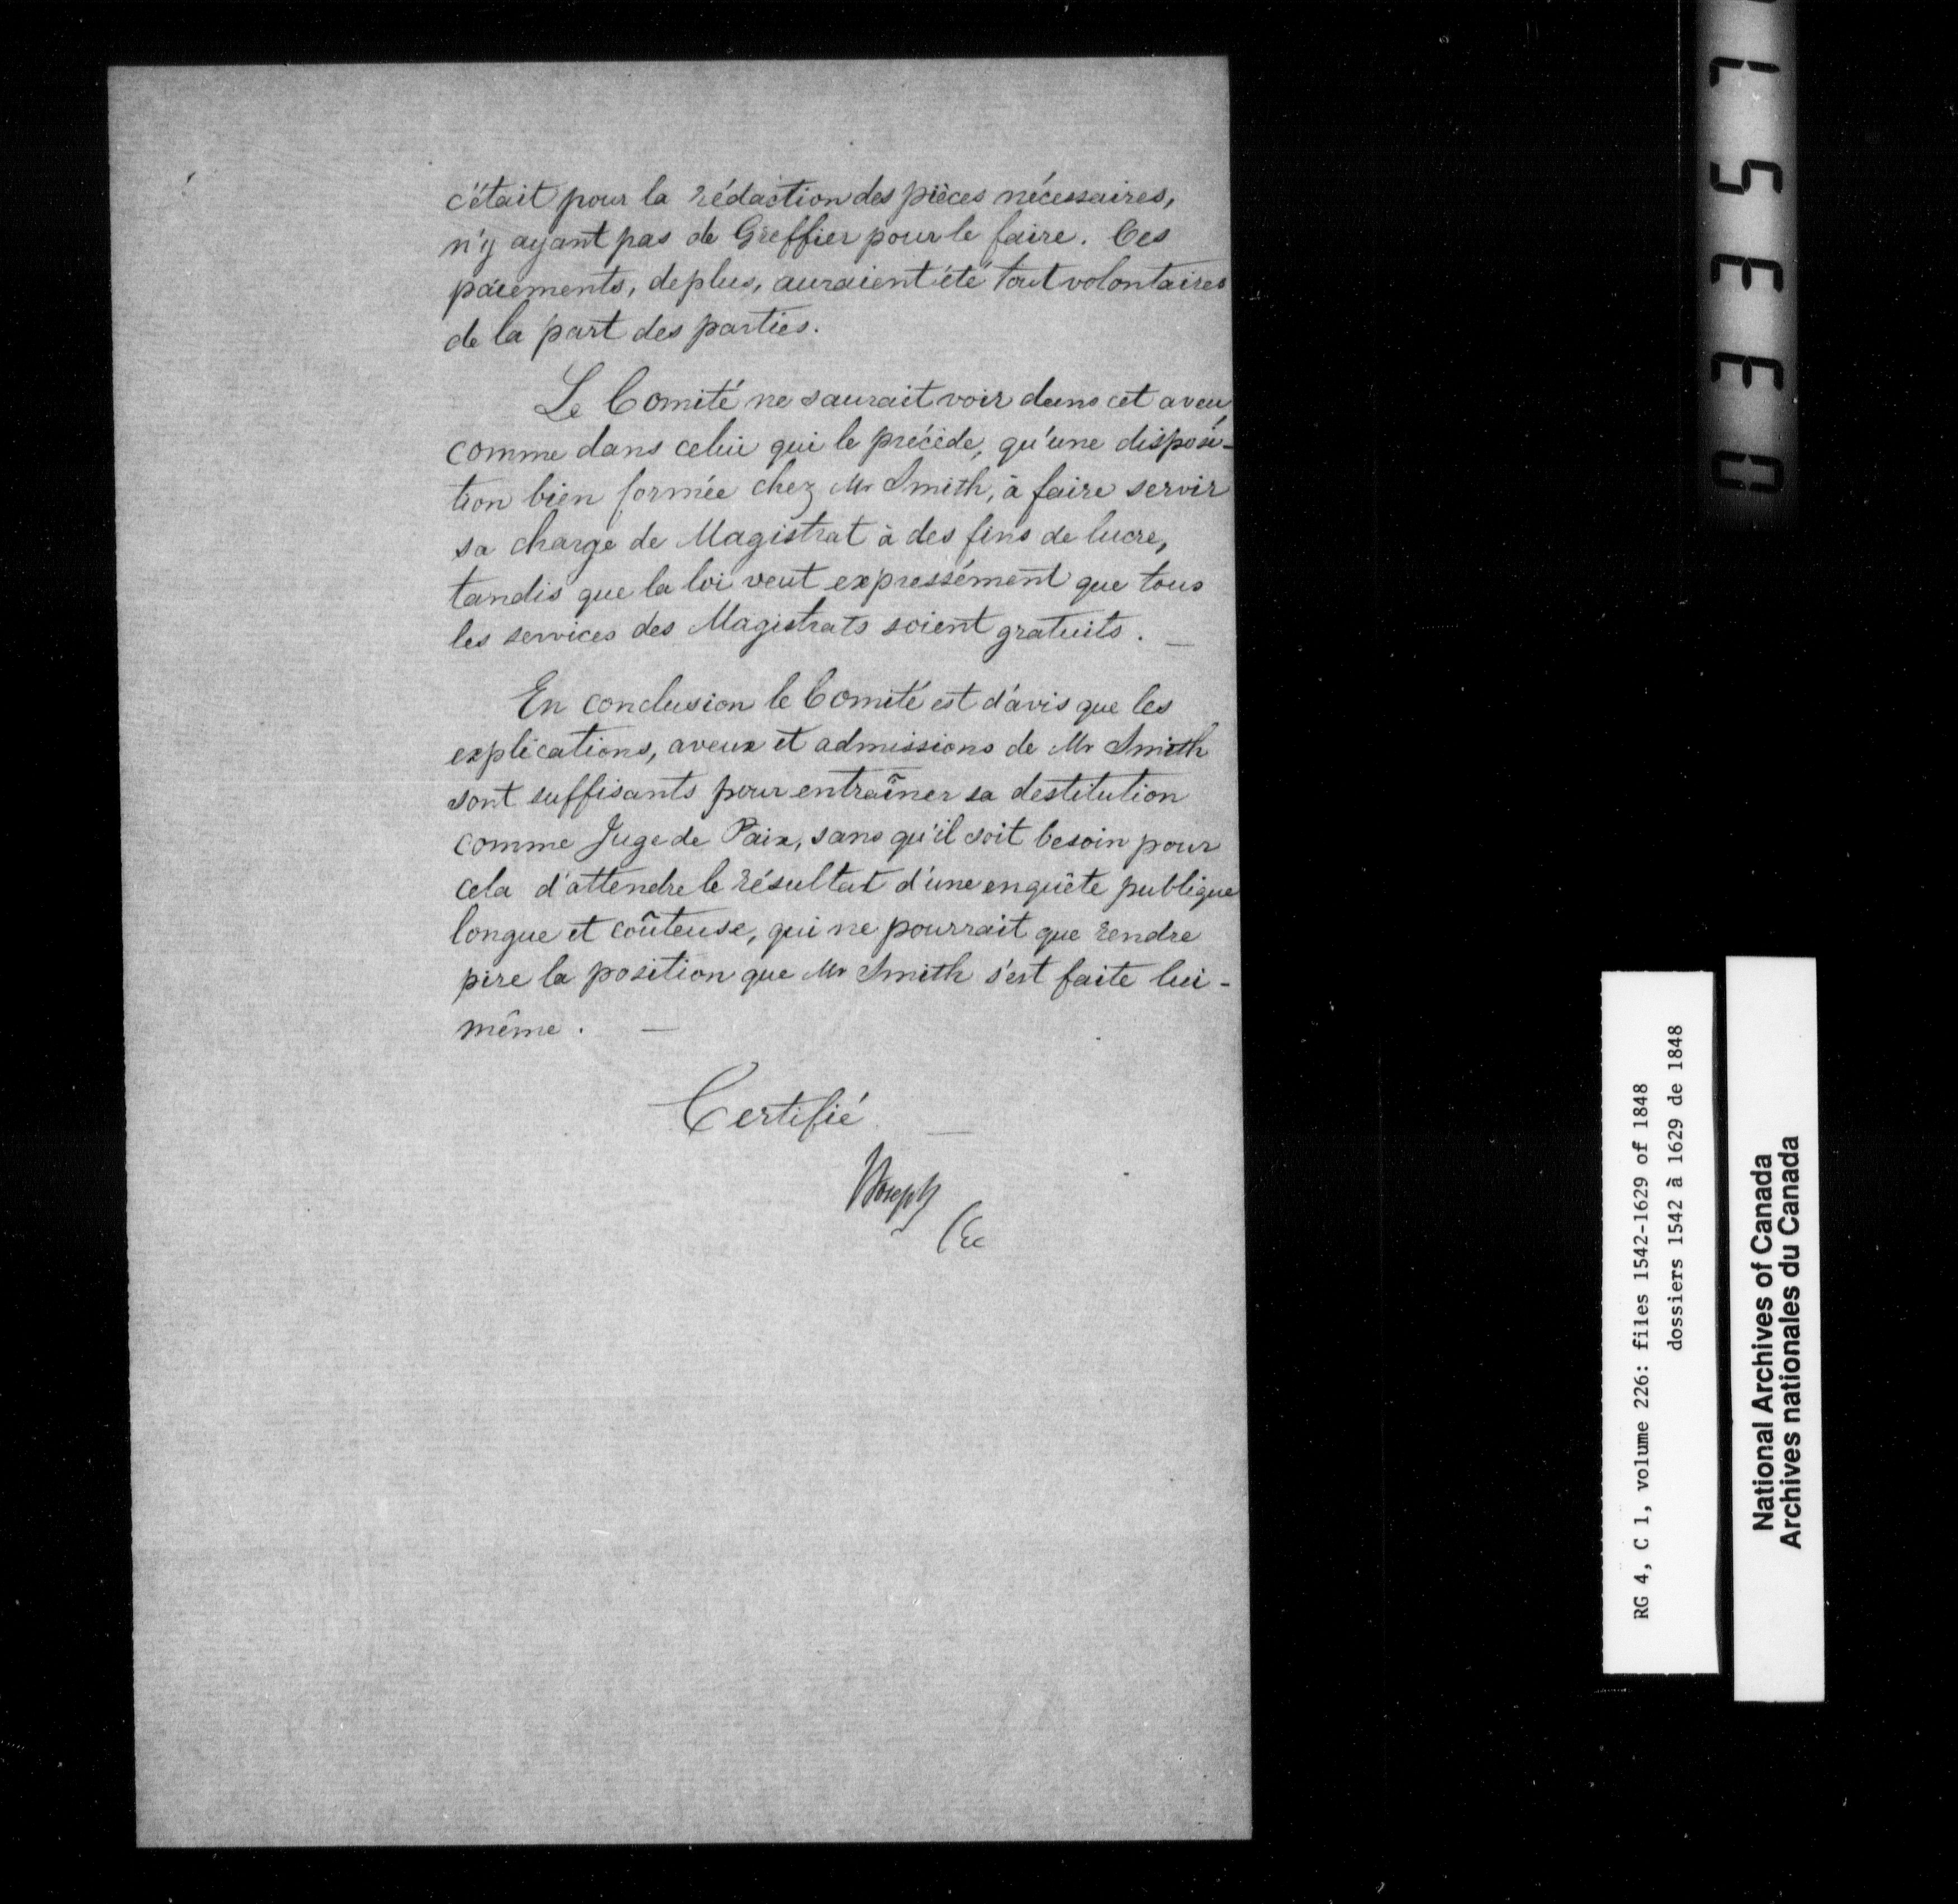 c'était pour la rédaction des pièces nécessaires,
n'y ayant pas de Greffier pour le faire. Ces
païements, de plus, auraient été tout volontaires
de la part des parties.
Le Comité ne saurait voir dans cet aveu
comme dans celui qui le précède, qu'une disposi-
tion bien formée chez Mr Smith, à faire servir
sa charge de Magistrat à des fins de lucre,
tandis que la loi veut expressément que tous
les services des Magistrats soient gratuits. —
En conclusion le Comité est d'avis que les
explications, aveux et admissions de Mr Smith
sont suffisants pour entraîner sa destitution
comme Juge de Paix, sans qu'il soit besoin pour
cela d'attendre le résultat d'une enquête publique
longue et coûteuse, qui ne pourrait que rendre
pire la position que Mr Smith s'est faite lui-
même. —
Certifié —
03357
RG 4, C 1, volume 226: files 1542-1629 of 1848
dossiers 1542 à 1629 de 1848
National Archives of Canada
Archives nationales du Canada